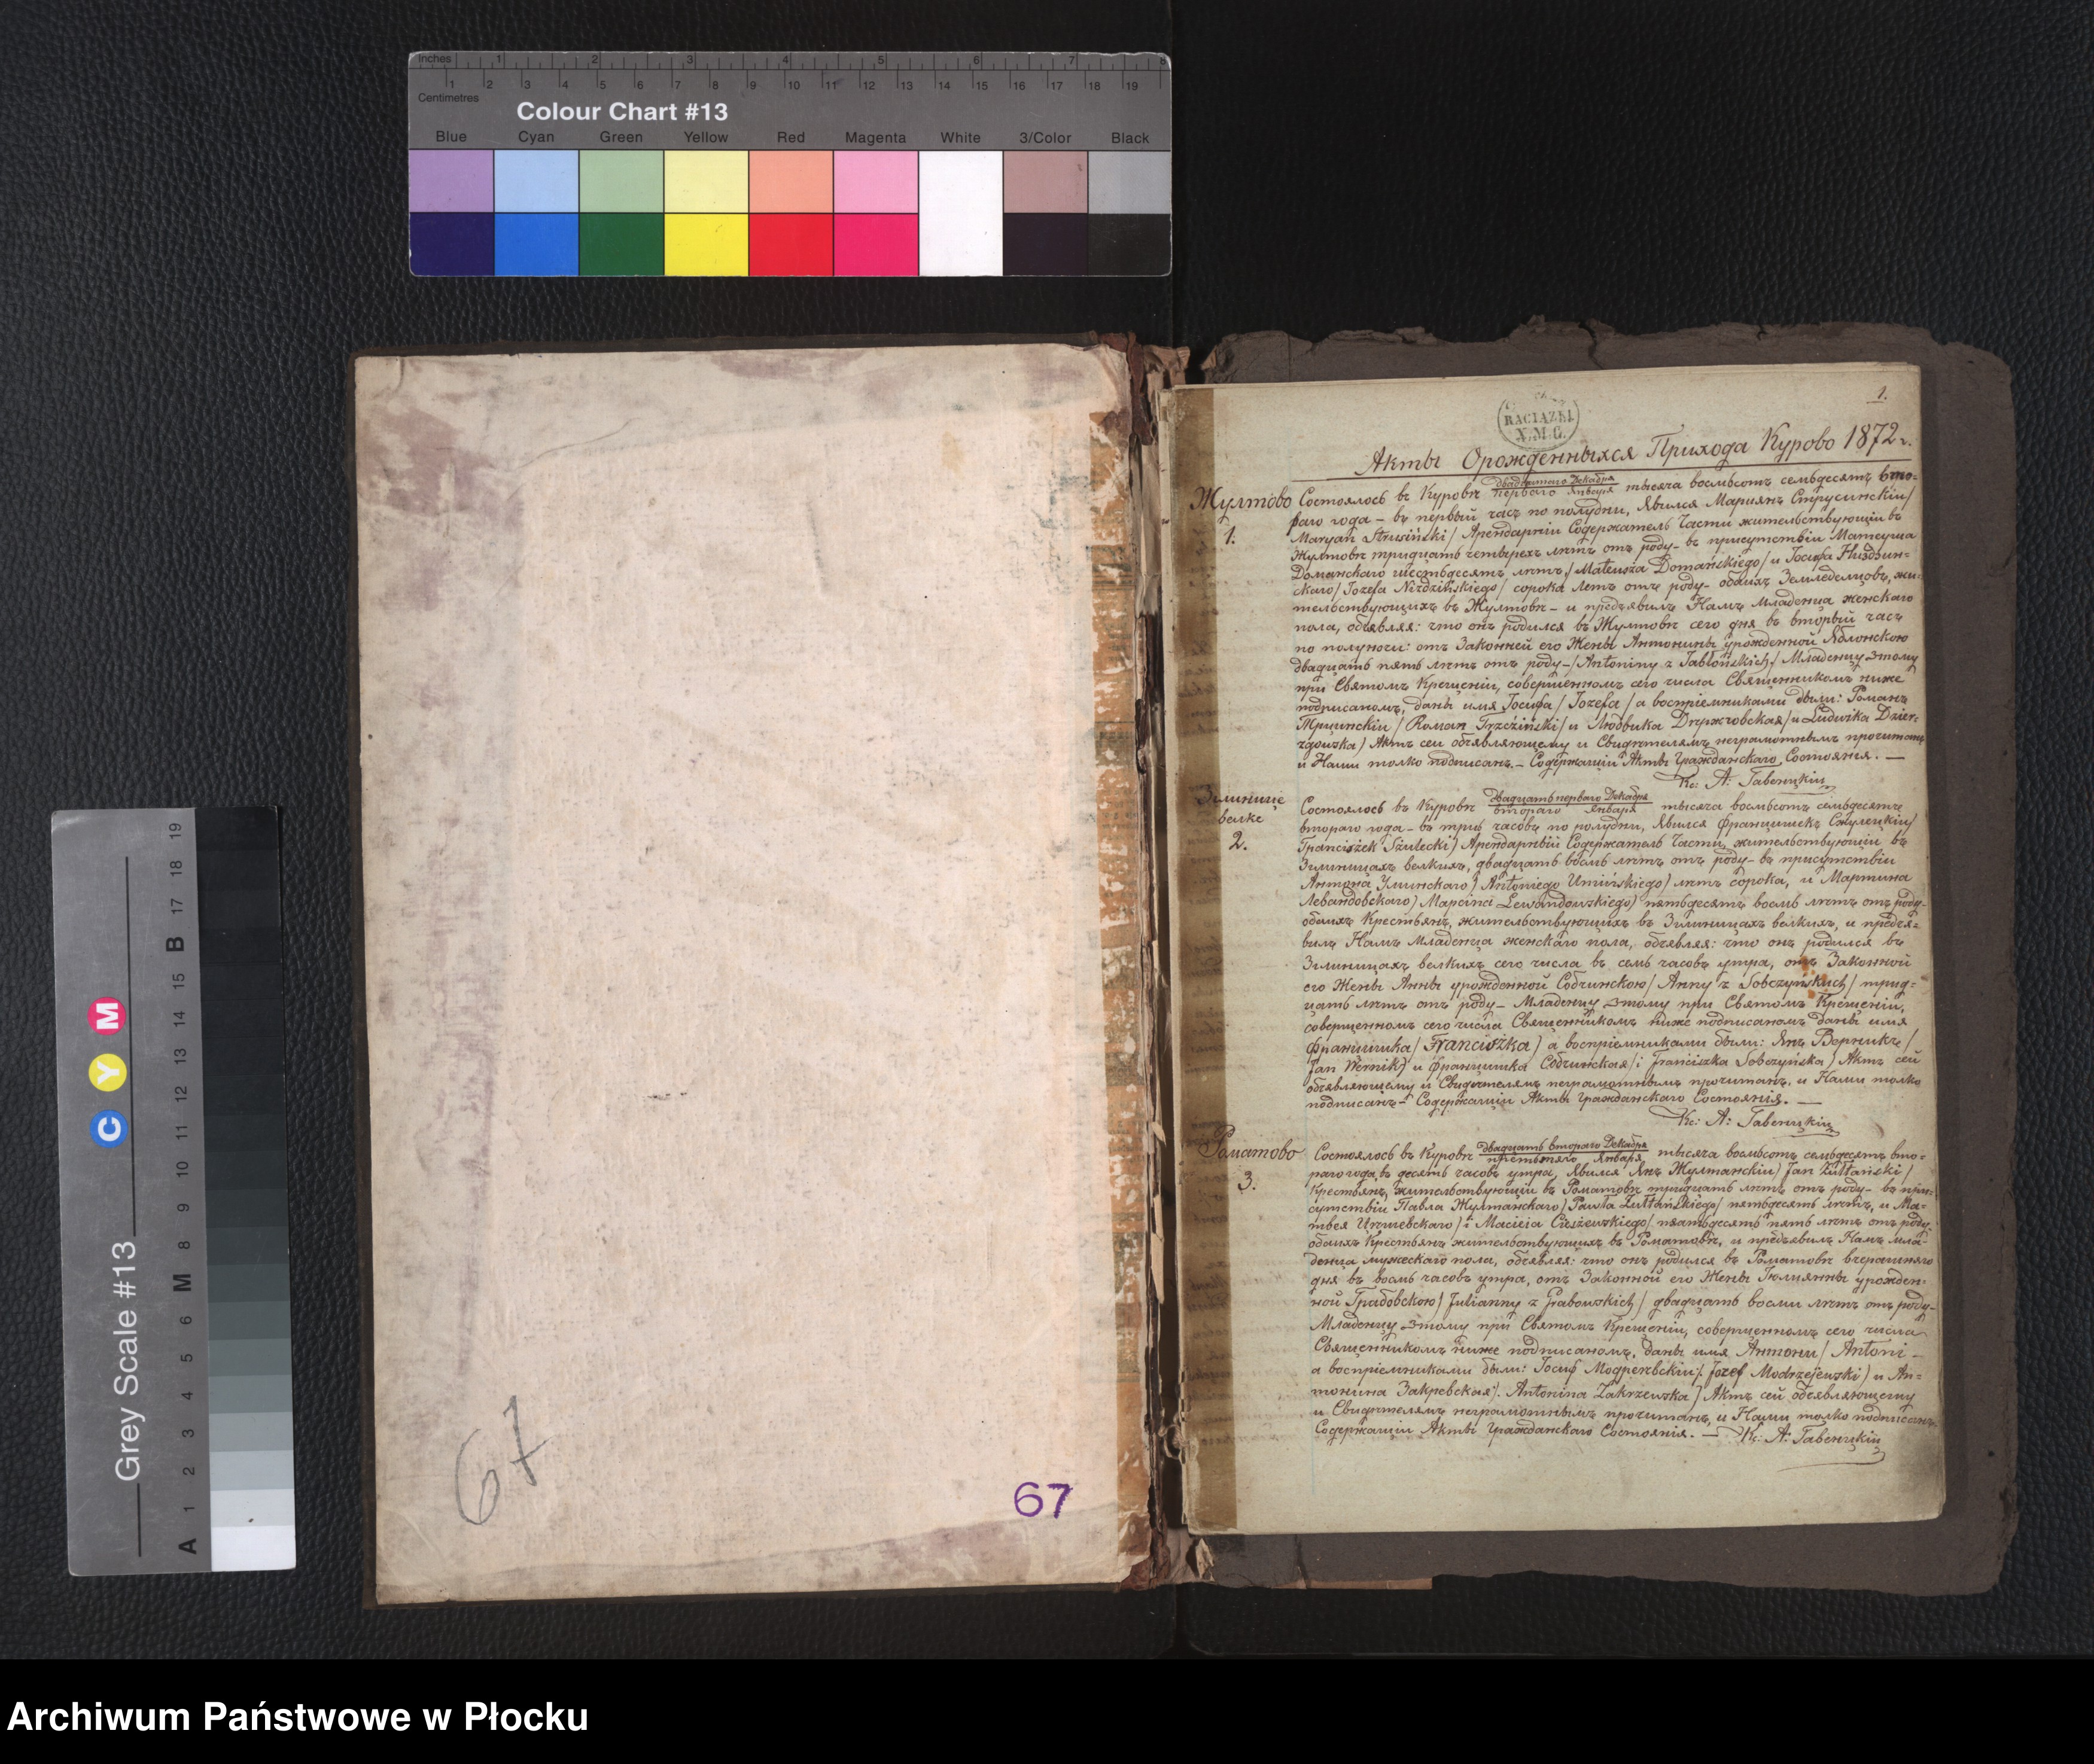 Inches 1 2 3 4 5 6 7 8
1 2 3 4 5 6 7 8 9 10 11 12 13 14 15 16 17 18 19
Centimetres
Colour Chart #13
Blue Cyan Green Yellow Red Magenta White 3/Color Black
Grey Scale #13
C Y M
A 1 2 3 4 5 6 M 8 9 10 11 12 13 14 15 B 17 18 19
67
67
1.
RACIĄZKI
X.M.G.
Акты Орожденныхся Прихода Курово 1872 г.
Жултово
1.
двадцатаго Декабря
Состоялось въ Куровѣ перваго Января тысяча восемьсотъ семьдесятъ вто=
раго года – въ первый часъ по полудни, явился Маріянъ Струсинскiи/
Maryan Strusiński/ Арендарнiи Содержатель Части жительствующiи въ
Жултовѣ тридцать четырехъ лѣтъ отъ роду – въ присутствiи Матеуша
Доманскаго шестьдесятъ лѣтъ/ Mateusza Domańskiego/ и Іосифа Низдзин=
скаго/ Józefa Nizdzińskiego/ сорока летъ отъ роду – обоихъ Земледелцовъ, жи=
тельствующихъ въ Жултовѣ – и предъявилъ Намъ Младенца женскаго
пола, объявляя: что онъ родился въ Жултовѣ сего дня въ вторый часъ
по полуночи: отъ Законней его Жены Антонины урожденной Яблонскою
двадцать пять лѣтъ отъ роду –/ Antoniny z Jabłońskich/ Младенцу этому
при Святомъ Крещенiи, совершенномъ сего числа Священникомъ ниже
подписаномъ, даны имя Іосифа/ Józefa/ а воспрiемниками были: Романъ
Трцинскiи/ Roman Trzciński/ и Людвика Дзержговская/ и Ludwika Dzier=
zgowska/ Актъ сеи объявляющему и Свидѣтелямъ неграмотнымъ прочитанъ
и Нами толко подписанъ. – Содержащiи Акты Гражданскаго Состоянiя. —
Кс: А: Гавенцкiи
Зглинице
велке
2.
двадцать перваго Декабря
Состоялось въ Куровѣ втораго Января тысяча восемьсотъ семьдесятъ
втораго года – въ три часовъ по полудни, явился Францишекъ Сжулецкiи/
Franciszek Szulecki) Арендарнiй Содержатель Части, жительствующiи въ
Зглиницахъ велкихъ, двадцать восемь лѣтъ отъ роду – въ присутствiи
Антона Уминскаго) Antoniego Umińskiego) лѣтъ сорока, и Мартина
Левандовскаго) Marcina Lewandowskiego) пятьдесятъ восемь лѣтъ отъ роду –
обоихъ Крестьянъ, жительствующихъ въ Зглиницахъ велкихъ, и предъя=
вилъ Намъ Младенца женскаго пола, объявляя: что онъ родился въ
Зглиницахъ велкихъ сего числа въ семь часовъ утра, отъ Законной
его Жены Анны урожденной Собчинскою/ Anny z Sobczyńskich/ трид=
цать лѣтъ отъ роду – Младенцу этому при Святомъ Крещенiи,
совершенномъ сего числа Священникомъ ниже подписаномъ даны имя
Францишка/ Franciszka) а воспрiемниками были: Янъ Верникъ/
Jan Wernik) и Францишка Собчинская/ i Franciszka Sobczyńska) Актъ сей
объявляющему и Свидѣтелямъ неграмотнымъ прочитанъ, и Нами толко
подписанъ – Содержащiи Акты Гражданскаго Состоянiя. —
Кс: А: Гавенцкiи
Роматово
3.
двадцать втораго Декабря
Состоялось въ Куровѣ третьяго Января тысяча восемьсотъ семьдесятъ вто=
раго года, въ десять часовъ утра, явился Янъ Жултанскiи) Jan Żułtański/
Крестьянъ, жительствующiи въ Роматовѣ тридцать лѣтъ отъ роду – въ при=
сутствiи Павла Жултанскаго) Pawła Żułtańskiego/ пятьдесятъ лѣтъ, и Ма=
твея Цешевскаго/ i Macieja Cieszewskiego/ пятьдесятъ пять лѣтъ отъ роду
обоихъ Крестьянъ жительствующихъ въ Роматовѣ, и предъявилъ Намъ мла=
денца мужескаго пола, объявляя: что онъ родился въ Роматовѣ вчерашняго
дня въ восемь часовъ утра, отъ Законной его Жены Юлiянны урожден=
ной Грабовскою) Julianny z Grabowskich/ двадцать восьми лѣтъ отъ роду –
Младенцу этому при Святомъ Крещенiи, совершенномъ сего числа
Священникомъ ниже подписаномъ, даны имя Антони/ Antoni –
а воспрiемниками были: Іосиф Модржеевскiи/ Józef Modrzejewski) и Ан=
тонина Закржевская/ Antonina Zakrzewska) Актъ сей объявляющему
и Свидѣтелямъ неграмотнымъ прочитанъ, и Нами толко подписанъ.
Содержащiи Акты Гражданскаго Состоянiя. — Кс: А: Гавенцкiи
Archiwum Państwowe w Płocku